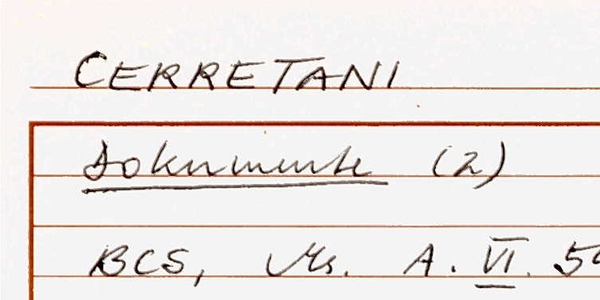 CERRETANI
Dokumente (2)
BCS, Ms. A. VI. 54